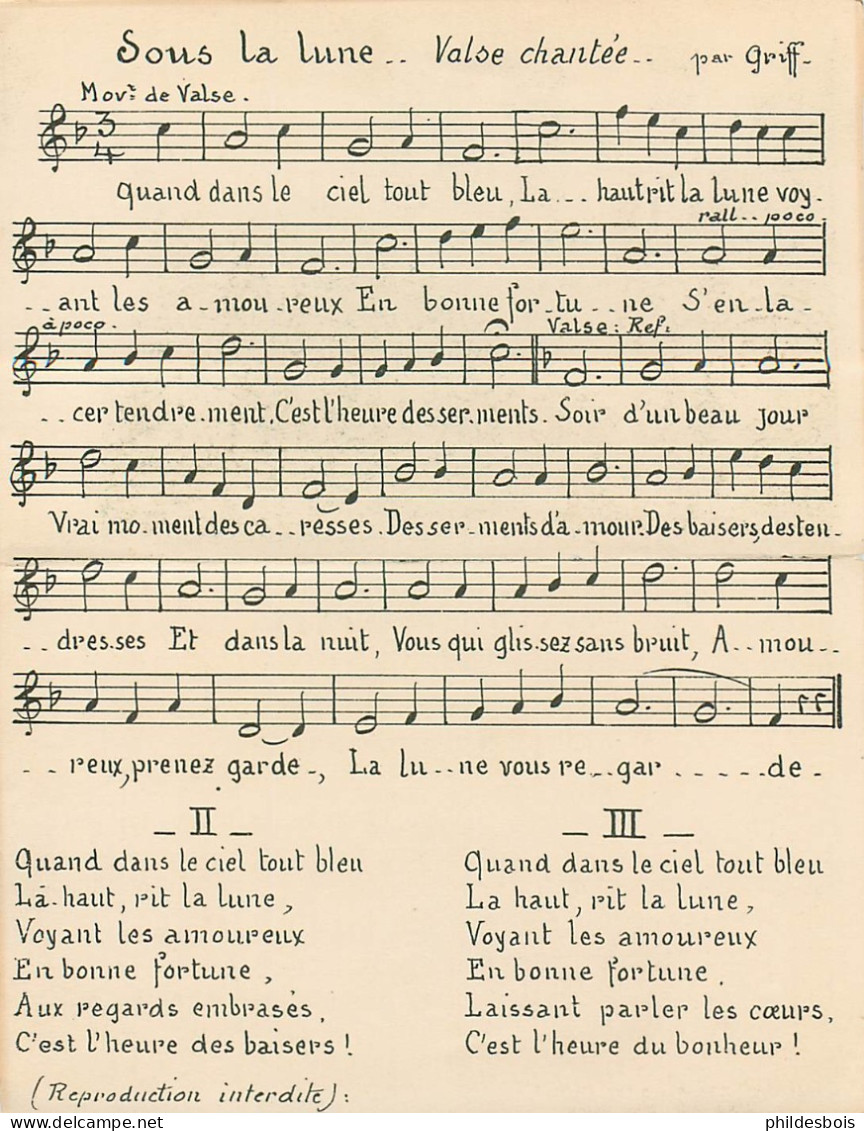 Sous la lune .. Valse chantée .. par Griff-
Mov.t de Valse.
3
4
Quand dans le ciel tout bleu, La... haut rit la lune voy-
rall... poco.
..ant les a-mou-reux En bonne for-tu...ne S'en-la-
à poco.
Valse: Ref:
..cer tendre.ment. C'est l'heure des ser.ments. Soir d'un beau jour
Vrai mo-ment des ca..resses. Des ser-ments d'a-mour. Des baisers, des ten-
..dres.ses Et dans la nuit, Vous qui glis.sez sans bruit, A..mou..
..reux, prenez garde-, La lu..ne vous re..gar.....de-
_ II _
Quand dans le ciel tout bleu
Là-haut, rit la lune,
Voyant les amoureux
En bonne fortune,
Aux regards embrasés,
C'est l'heure des baisers !
_ III _
Quand dans le ciel tout bleu
La haut, rit la lune,
Voyant les amoureux
En bonne fortune.
Laissant parler les cœurs,
C'est l'heure du bonheur !
(Reproduction interdite):
phildesbois